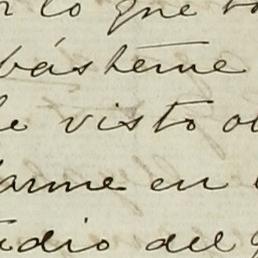 lo que
básteme
he visto
arme en
udio del